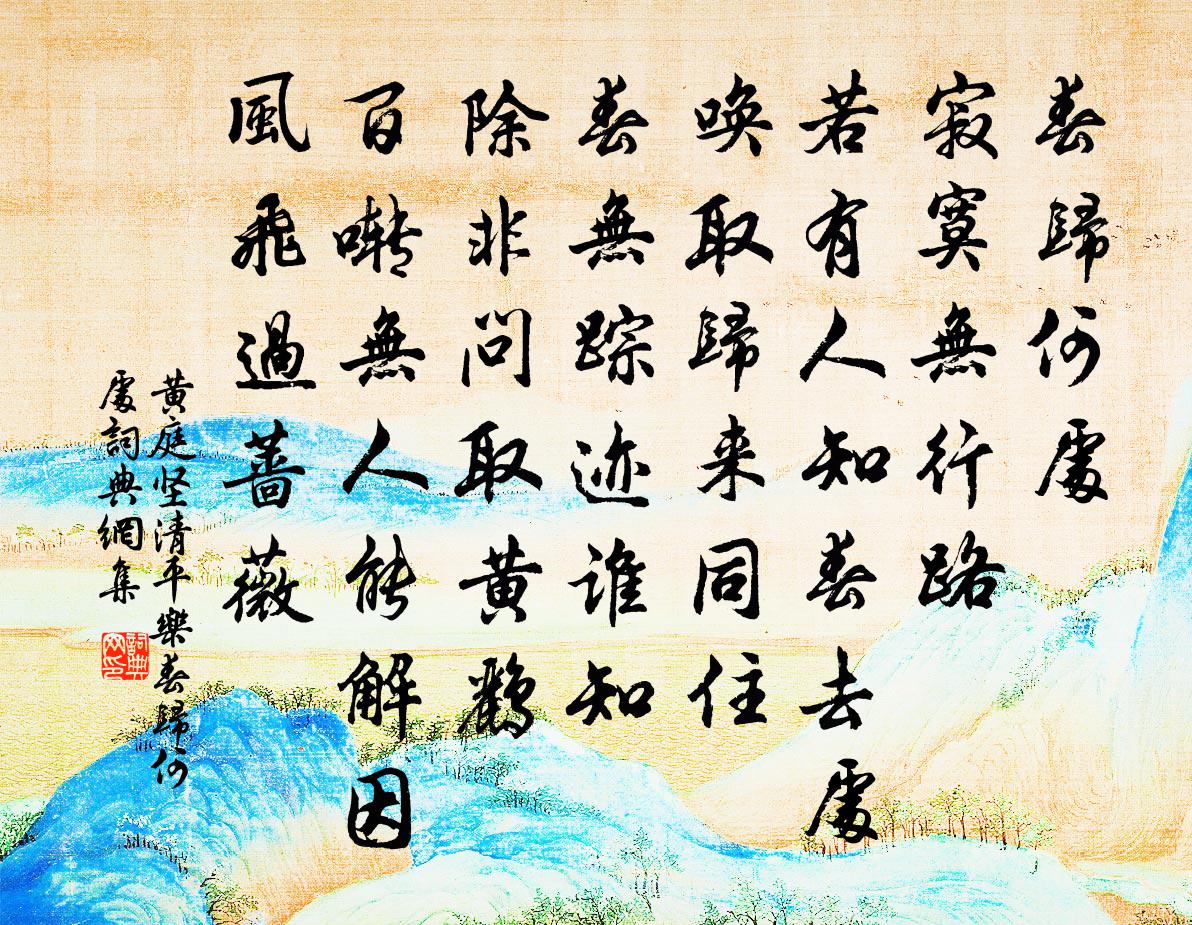 春歸何處
寂寞無行路
若有人知春去處
唤取歸来同住
春無踪迹誰知
除非問取黄鸝
百囀無人能解因
風飛過薔薇
黄庭坚清平樂春歸何
處詞典網集
詞典网印